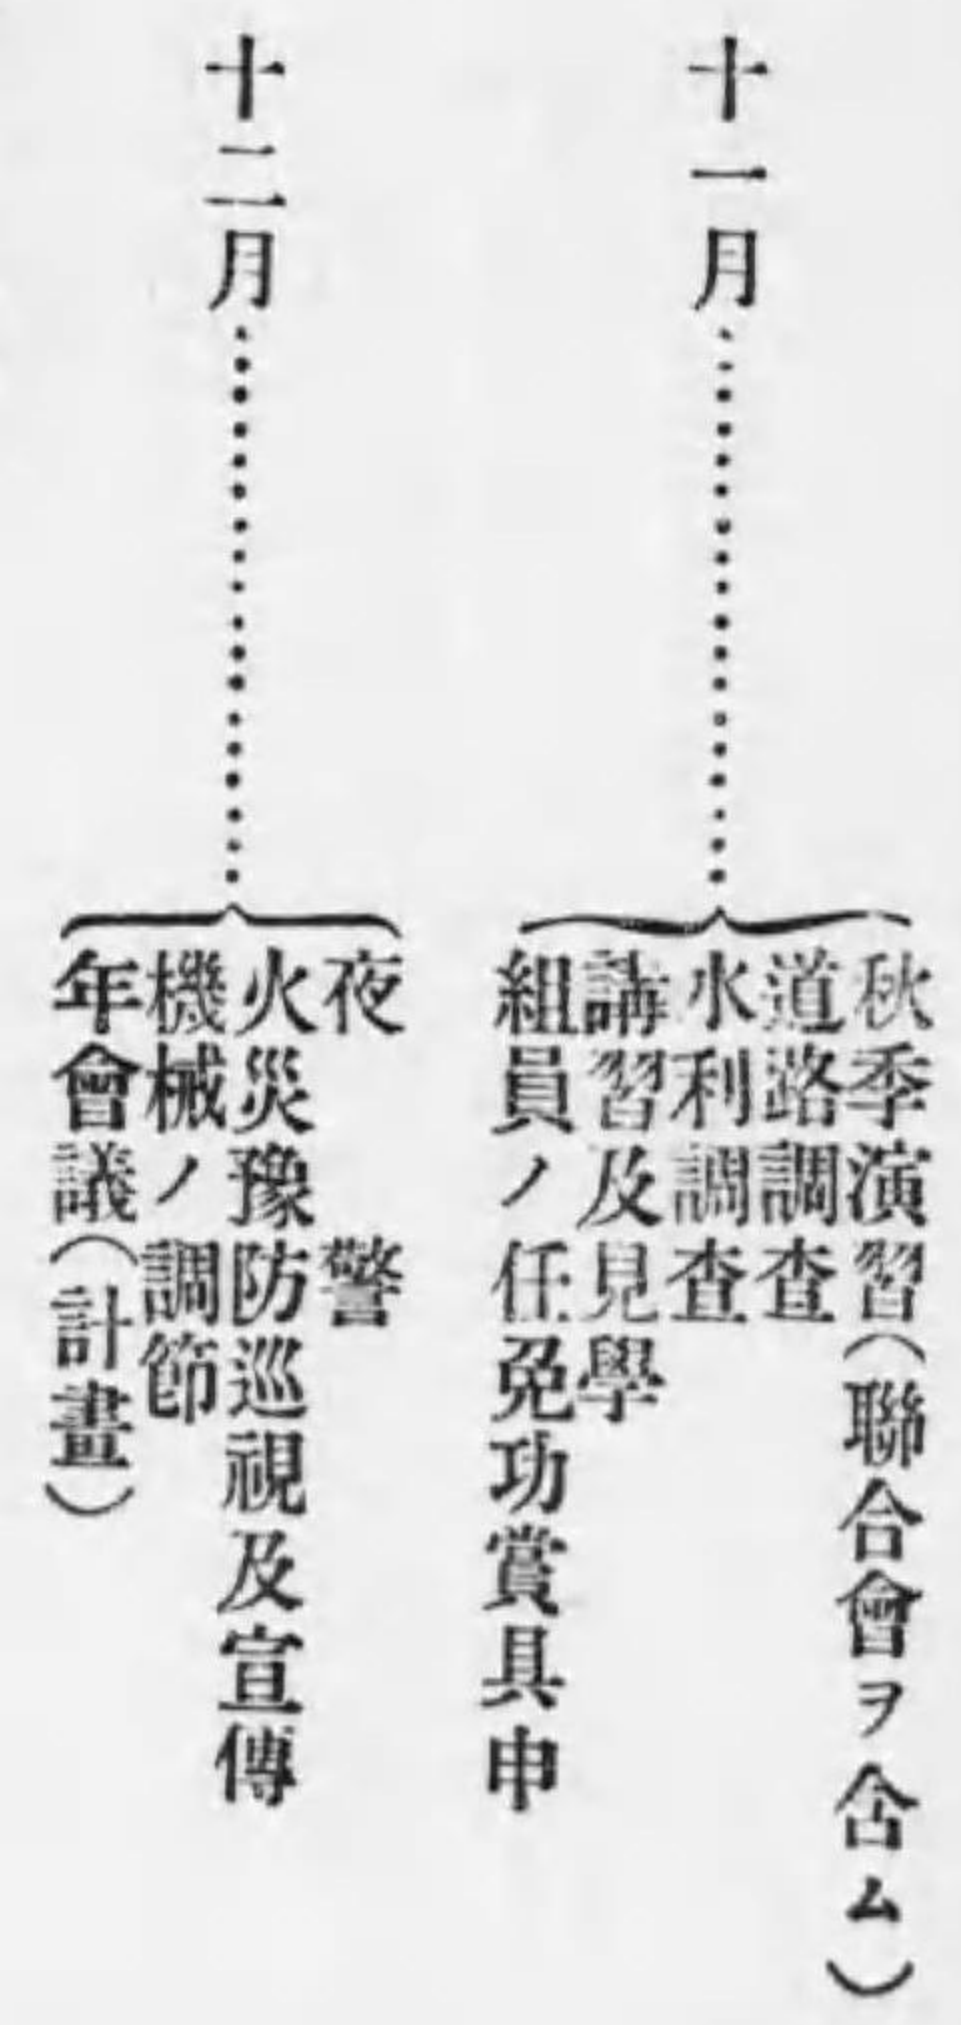 十一月………………
秋季演習(聯合會ヲ含ム)
道路調査
水利調査
講習及見學
組員ノ任免功賞具申
十二月………………
夜警
火災豫防巡視及宣傳
機械ノ調節
年會議(計畫)